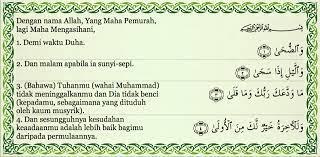 Dengan nama Allah, Yang Maha Pemurah,
lagi Maha Mengasihani,
بِسْمِ اللَّهِ الرَّحْمَٰنِ الرَّحِيمِ
1. Demi waktu Duha.
وَالضُّحَىٰ ﴿١﴾
2. Dan malam apabila ia sunyi-sepi.
وَاللَّيْلِ إِذَا سَجَىٰ ﴿٢﴾
3. (Bahawa) Tuhanmu (wahai Muhammad)
tidak meninggalkanmu dan Dia tidak benci
(kepadamu, sebagaimana yang dituduh
oleh kaum musyrik).
مَا وَدَّعَكَ رَبُّكَ وَمَا قَلَىٰ ﴿٣﴾
4. Dan sesungguhnya kesudahan
keaadaanmu adalah lebih baik bagimu
daripada permulaannya.
وَلَلْآخِرَةُ خَيْرٌ لَّكَ مِنَ الْأُولَىٰ ﴿٤﴾